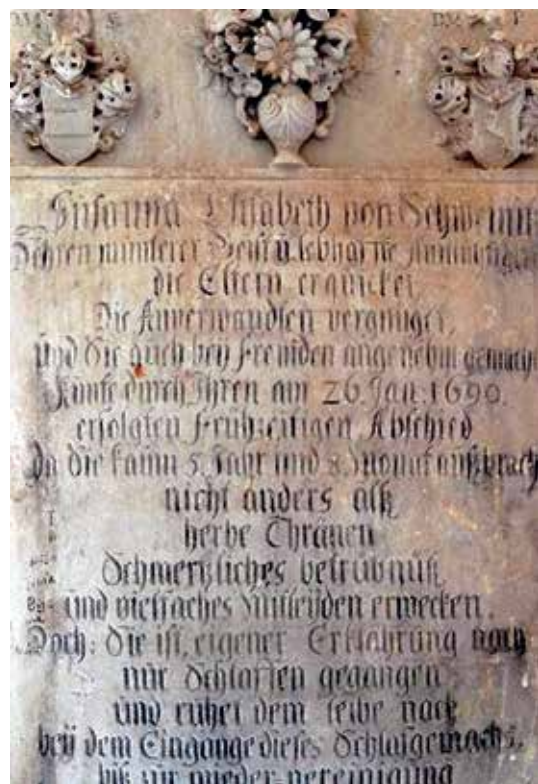 DM S
DM P
Susanna Elisabeth von Schweinit
Deren munterer Geist u. lebhafte
die Eltern erquicket,
Die Anverwandten vergnüget,
Und Sie auch bey Fremden angenehm gemacht
Kunte durch Ihren am 26. Jan: 1690.
erfolgten Frühzeitigen Abschied
Da Sie kaum 5. Jahr und 8. Monat
nicht anders alß
herbe Thränen
Schmertzliches betrübnüß
und vielfaches Mitleyden erwecken.
Doch: Sie ist, eigener Erklährung nach
nur Schlaffen gegangen
und ruhet dem leibe nach
bey dem Eingange dieses Schlafgemachs,
biß zur wieder-vereinigung